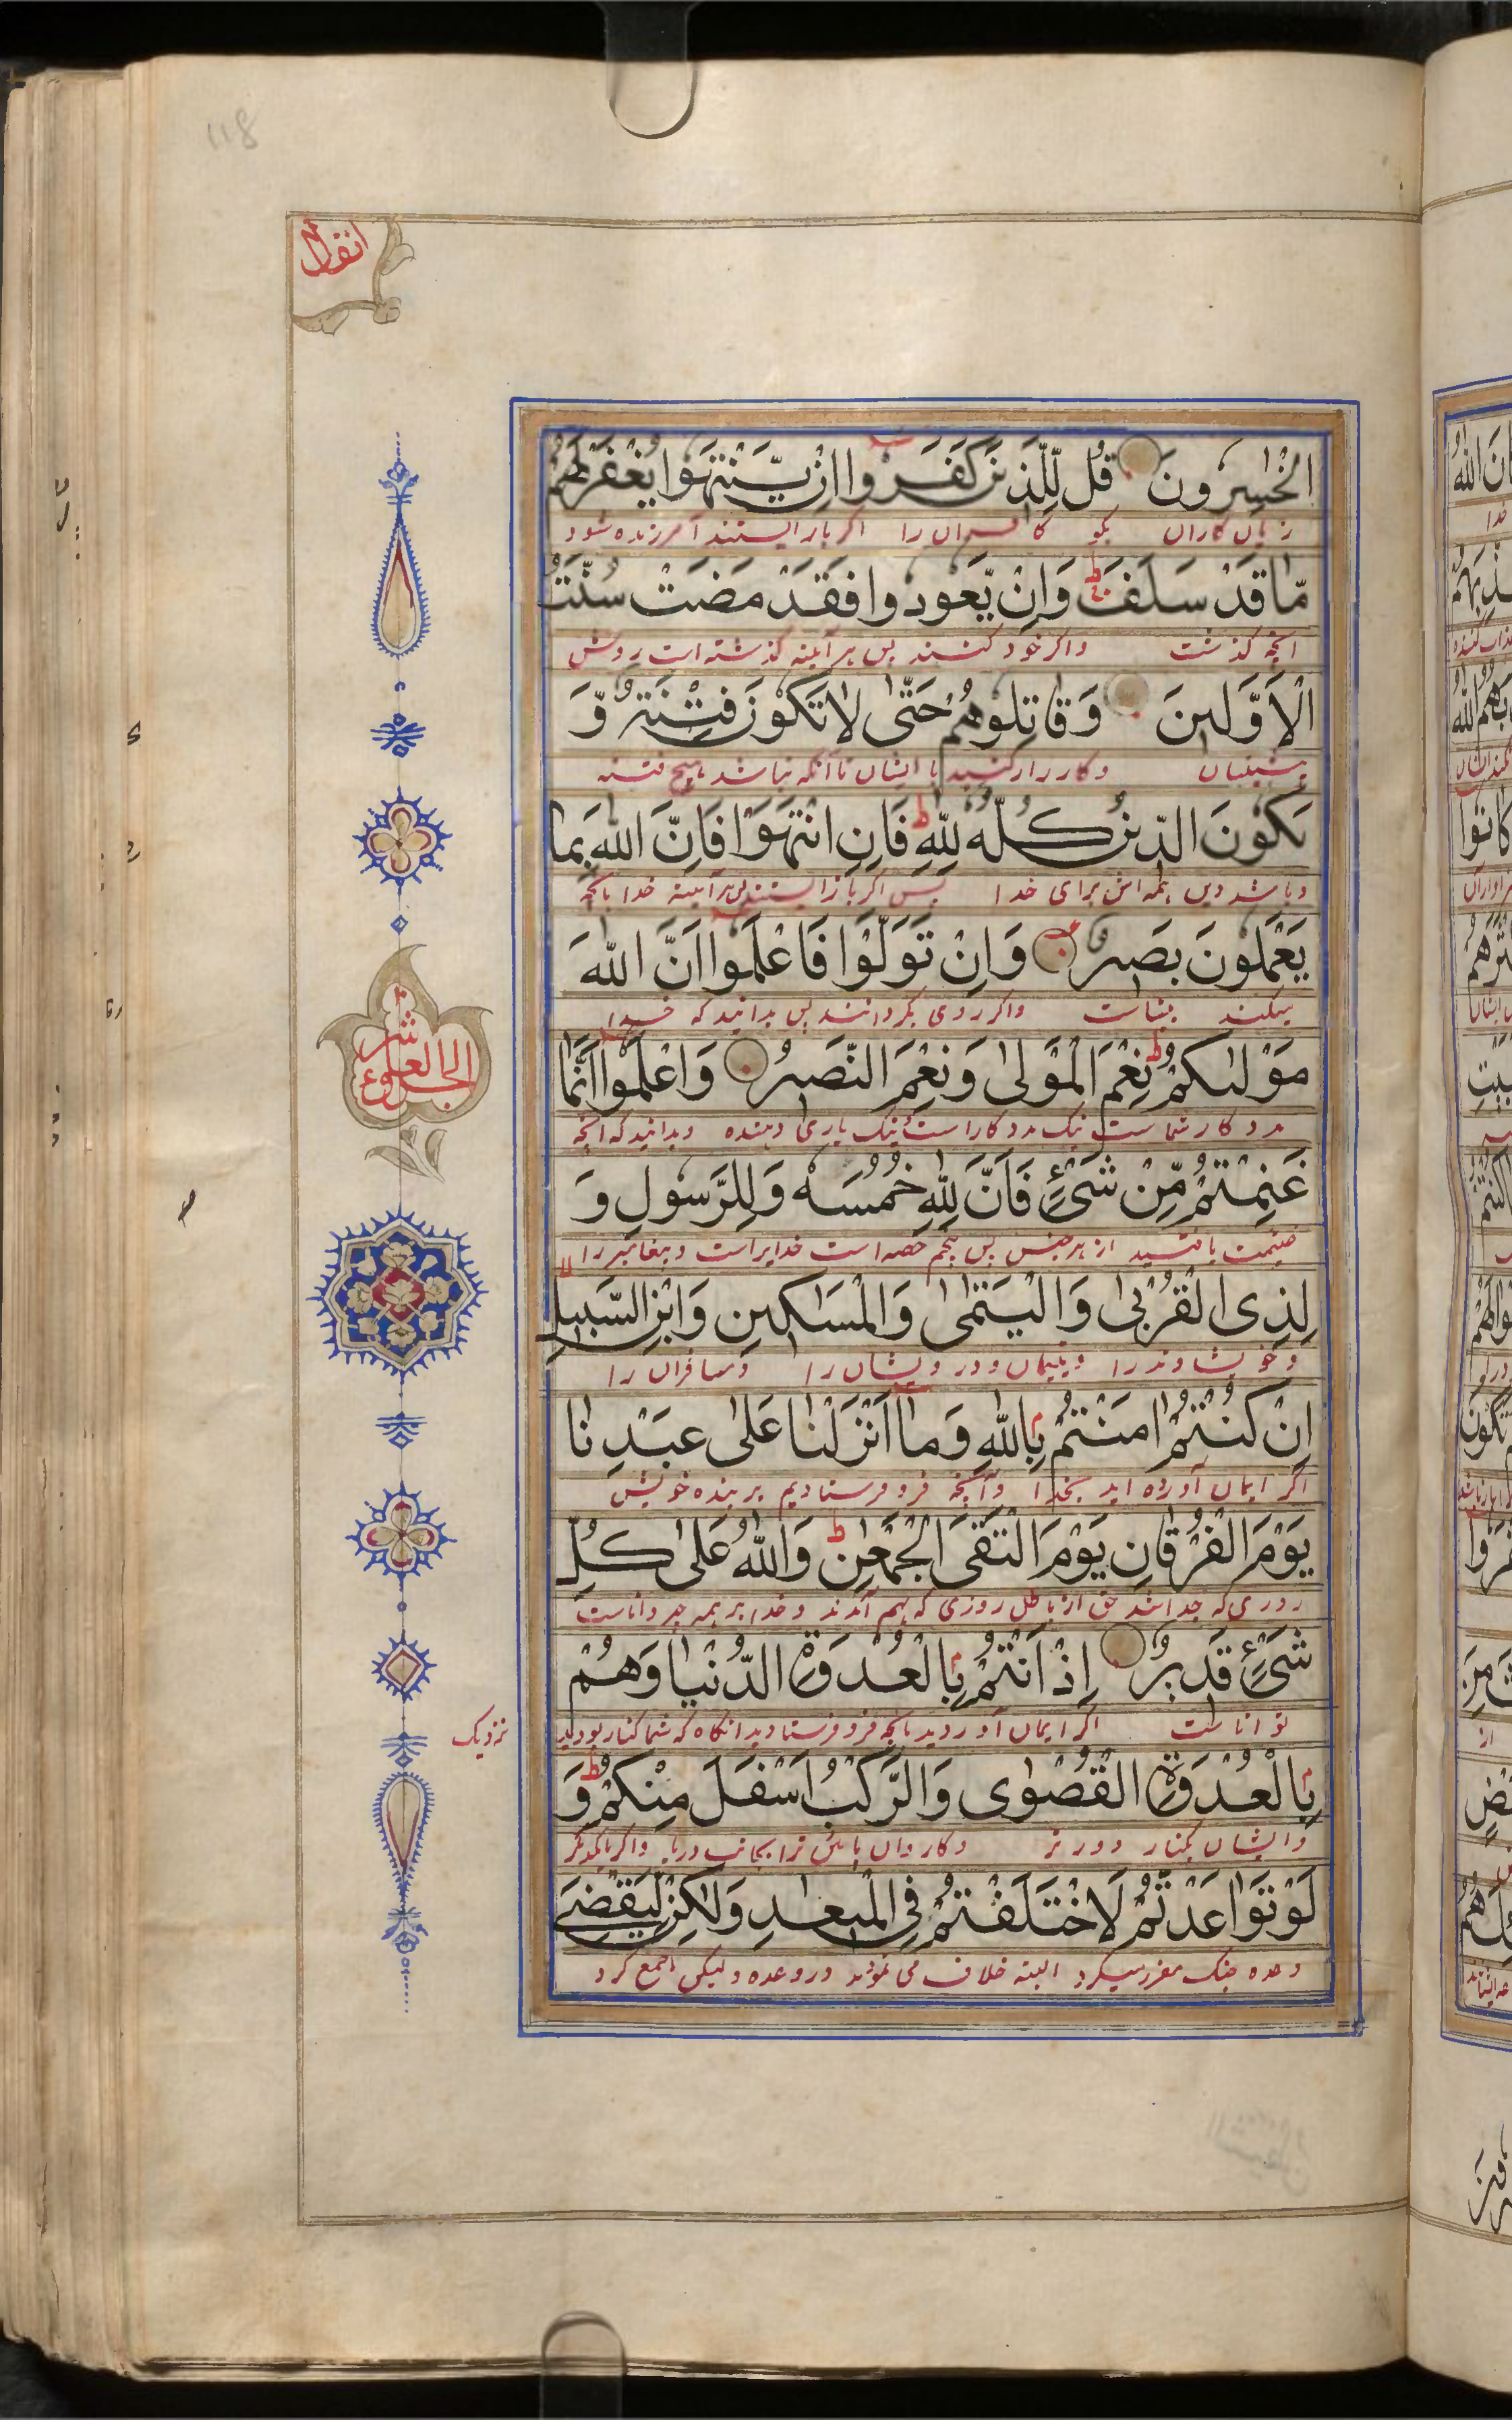 118
انفال
الْخٰسِرُونَ قُل لِّلَّذِينَ كَفَرُوا اِنْ يَّنْتَهُوا يُغْفَرْ لَهُمْ
زیان کاران بگو کافران را اگر باز ایستند آمرزنده شود
مَّا قَدْ سَلَفَ وَاِنْ يَّعُودُوا فَقَدْ مَضَتْ سُنَّتُ
انچه گذشت واگر خود کنند پس هر آئینه گذشته است روش
الْاَوَّلِينَ وَقَاتِلُوهُمْ حَتّٰى لَا تَكُونَ فِتْنَةٌ وَّ
پیشینیان وکارزار کنید با ایشان تا آنکه نباشد هیچ فتنه
يَكُونَ الدِّينُ كُلُّهُ لِلّٰهِ فَاِنِ انْتَهَوْا فَاِنَّ اللّٰهَ بِمَا
وباشد دین همه اش برای خدا پس اگر باز ایستند پس هر آئینه خدا بانچه
يَعْمَلُونَ بَصِيرٌ وَاِنْ تَوَلَّوْا فَاعْلَمُوا اَنَّ اللّٰهَ
میکنند بیناست واگر روی بگردانند پس بدانید که خدا
الجزء العاشر
مَوْلٰىكُمْ نِعْمَ الْمَوْلٰى وَنِعْمَ النَّصِيرُ وَاعْلَمُوا اَنَّمَا
مددکار شماست نیک مددکار است نیک یاری دهنده وبدانید که انچه
غَنِمْتُمْ مِّنْ شَيْءٍ فَاَنَّ لِلّٰهِ خُمُسَهُ وَلِلرَّسُولِ وَ
غنیمت یافتید از هر جنس پس پنجم حصه است خدایراست وپیغامبر را
لِذِى الْقُرْبٰى وَالْيَتٰمٰى وَالْمَسَاكِينِ وَابْنِ السَّبِيلِ
وخویشاوند را ویتیمان ودرویشان را ومسافران را
اِنْ كُنْتُمْ اٰمَنْتُمْ بِاللّٰهِ وَمَا اَنْزَلْنَا عَلٰى عَبْدِنَا
اگر ایمان آورده اید بخدا وآنچه فرو فرستادیم بر بنده خویش
يَوْمَ الْفُرْقَانِ يَوْمَ الْتَقَى الْجَمْعٰنِ وَاللّٰهُ عَلٰى كُلِّ
روزی که جدا شد حق از باطل روزی که بهم آمدند وخدا بر همه چیز داناست
شَيْءٍ قَدِيرٌ اِذْ اَنْتُمْ بِالْعُدْوَةِ الدُّنْيَا وَهُمْ
تواناست اگر ایمان آوردید بانچه فرو فرستادیم انگاه که شما کنار بودید
نزدیک
بِالْعُدْوَةِ الْقُصْوٰى وَالرَّكْبُ اَسْفَلَ مِنْكُمْ وَ
وایشان بکنار دورتر وکاروان پائین تر بجانب دریا واگر بایکدیگر
لَوْ تَوَاعَدْتُّمْ لَاخْتَلَفْتُمْ فِى الْمِيعٰدِ وَلٰكِنْ لِّيَقْضِيَ
وعده جنک مقرر میکرد البته خلاف می نمودید در وعده ولیکن جمع کرد